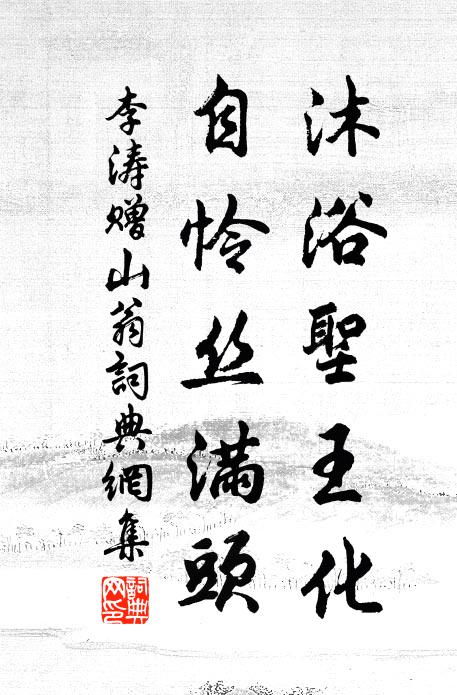 沐浴聖王化
自怜丝滿頭
李涛赠山翁詞典網集
詞典网印